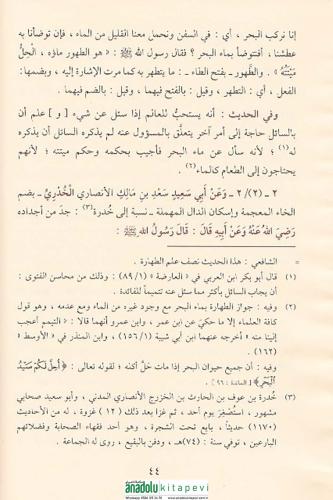 إنا نركب البحر ، أي : في السفن ونحمل معنا القليل من الماء ، فإن توضأنا به
عطشنا ، أفنتوضأ بماء البحر ؟ فقال رسول الله ﷺ : « هو الطهور ماؤه ، الحِلُّ
مَيْتَتُهُ » . والطَّهور - بفتح الطاء - : ما يتطهر به كما مرت الإشارة إليه ، وبضمها :
الفعل ، أي : التطهر ، وقيل : بالفتح فيهما ، وقيل : بالضم فيهما .
وفي الحديث : أنه يستحبُّ للعالم إذا سئل عن شيء [ و ] علم أن
بالسائل حاجة إلى أمر آخر يتعلَّق بالمسؤول عنه لم يذكره السائل أن يذكره
له (١) ؛ لأنه سأل عن ماء البحر فأجيب بحكمه وحكم ميتته ؛ لأنهم
يحتاجون إلى الطعام كالماء (٢) .
٢ - (٢/ ٢) - وَعَنْ أَبِي سَعِيدٍ سَعْدِ بْنِ مَالِكٍ الأنصاري الْخُدْرِيِّ - بضم
الخاء المعجمة وإسكان الدال المهملة - نسبة إلى خُدرة (٣) : جدّ من أجداده
رَضِيَ اللهُ عَنْهُ وَعَنْ أَبِيهِ قَالَ : قَالَ رَسُولُ اللهِ ﷺ :
= الشافعي : هذا الحديث نصف علم الطهارة .
(١) قال أبو بكر ابن العربي في « العارضة » (١/ ٨٩) : وذلك من محاسن الفتوى :
أن يجاب السائل بأكثر مما سئل عنه تتميماً للفائدة .
(٢) وفيه : جواز الطهارة بماء البحر مع وجود غيره من الماء ومع عدمه ، وهو قول
كافة العلماء إلا ما حكي عن ابن عمر ، وابن عمرو أنهما قالا : « التيمم أعجب
إلينا منه » أخرجه عنهما ابن أبي شيبة (١/ ١٥٦) ، وابن المنذر في « الأوسط »
(١٦٢) .
وفيه : أن جميع حيوان البحر إذا مات حَلَّ أكله ؛ لقوله تعالى : ﴿ أُحِلَّ لَكُمْ صَيْدُ
الْبَحْرِ ﴾ [المائدة : ٩٦] .
(٣) خُدرة بن عوف بن الحارث بن الخزرج الأنصاري المدني ، وأبو سعيد صحابي
مشهور ، استُصْغِرَ يوم أحد ، ثم غزا بعد ذلك ( ١٢ ) غزوة ، له من الأحاديث
(١١٧٠) حديثاً ، بايع تحت الشجرة ، وهو أحد فقهاء الصحابة وفضلائهم
البارعين ، توفي سنة : (٧٤)هـ ، ودفن بالبقيع ، روى له الجماعة .
٤٤
anadolukitapevi